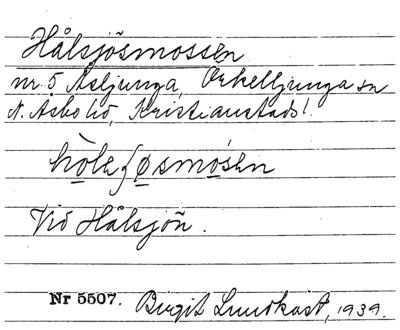 Hålsjösmossen
nr 5 Åsljunga, Örkelljunga sn
N. Åsbo hd, Kristianstads l.
hòleʃøsmósen
Vid Hålsjön.
Nr 5507. Birgit Lundkvist, 1939.